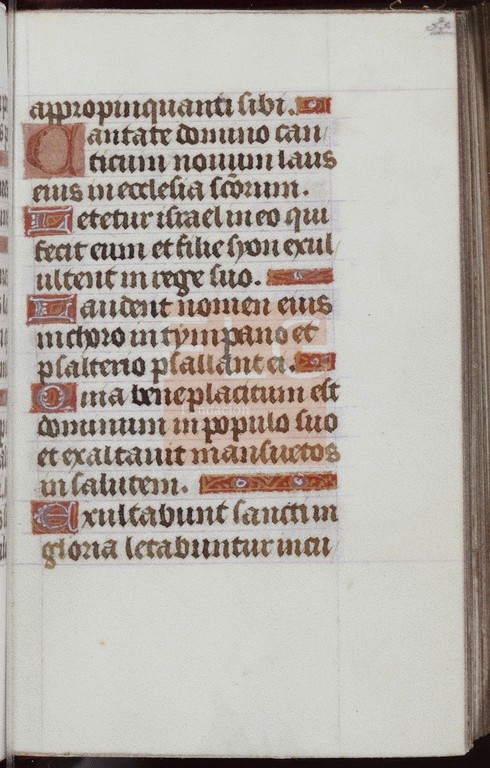 appropinquanti sibi.
Cantate domino can
ticum novum laus
eius in ecclesia sc̄orum.
Letetur israel in eo qui
fecit eum et filie syon exul
ultent in rege suo.
Laudent nomen eius
in choro in tympano et
psalterio psallant ei.
Quia beneplacitum est
dominum in populo suo
et exaltavit mansuetos
in salutem.
Exultabunt sancti in
gloria letabuntur in cu
fundación